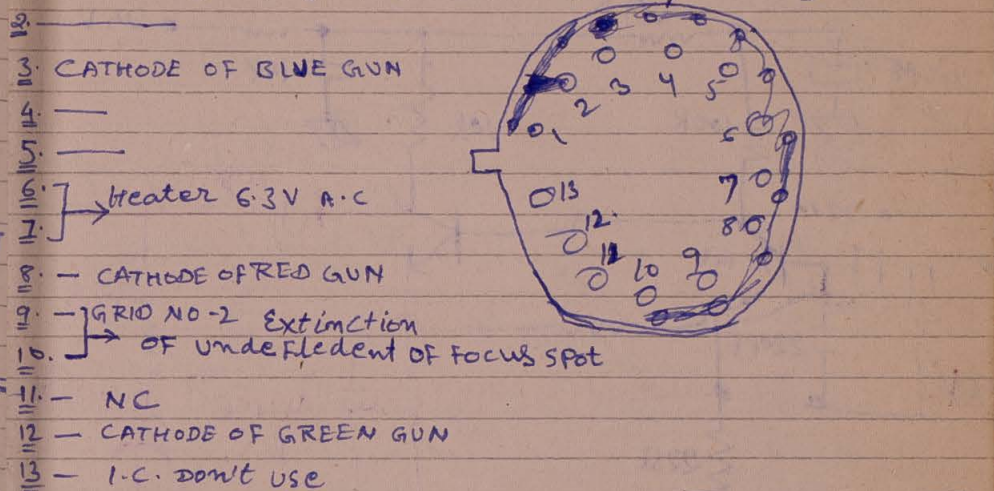 2. —
3. CATHODE OF BLUE GUN
4. —
5. —
6.
7. Heater 6.3V A.C
8. — CATHODE OF RED GUN
9. — GRID NO-2 Extinction
10. OF undefledent OF FOCUS SPOT
11. — NC
12 — CATHODE OF GREEN GUN
13 — I.C. DON'T USE
1
2
3
4
5
6
7
8
9
10
11
12.
13